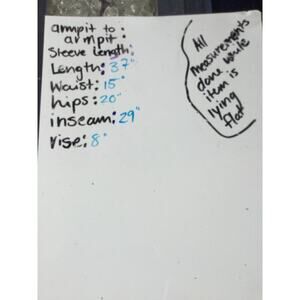 armpit to :
armpit :
Sleeve Length:
Length: 37"
Waist: 15"
hips: 20"
inseam: 29"
rise: 8"
All
measurements
done while
item is
lying
flat